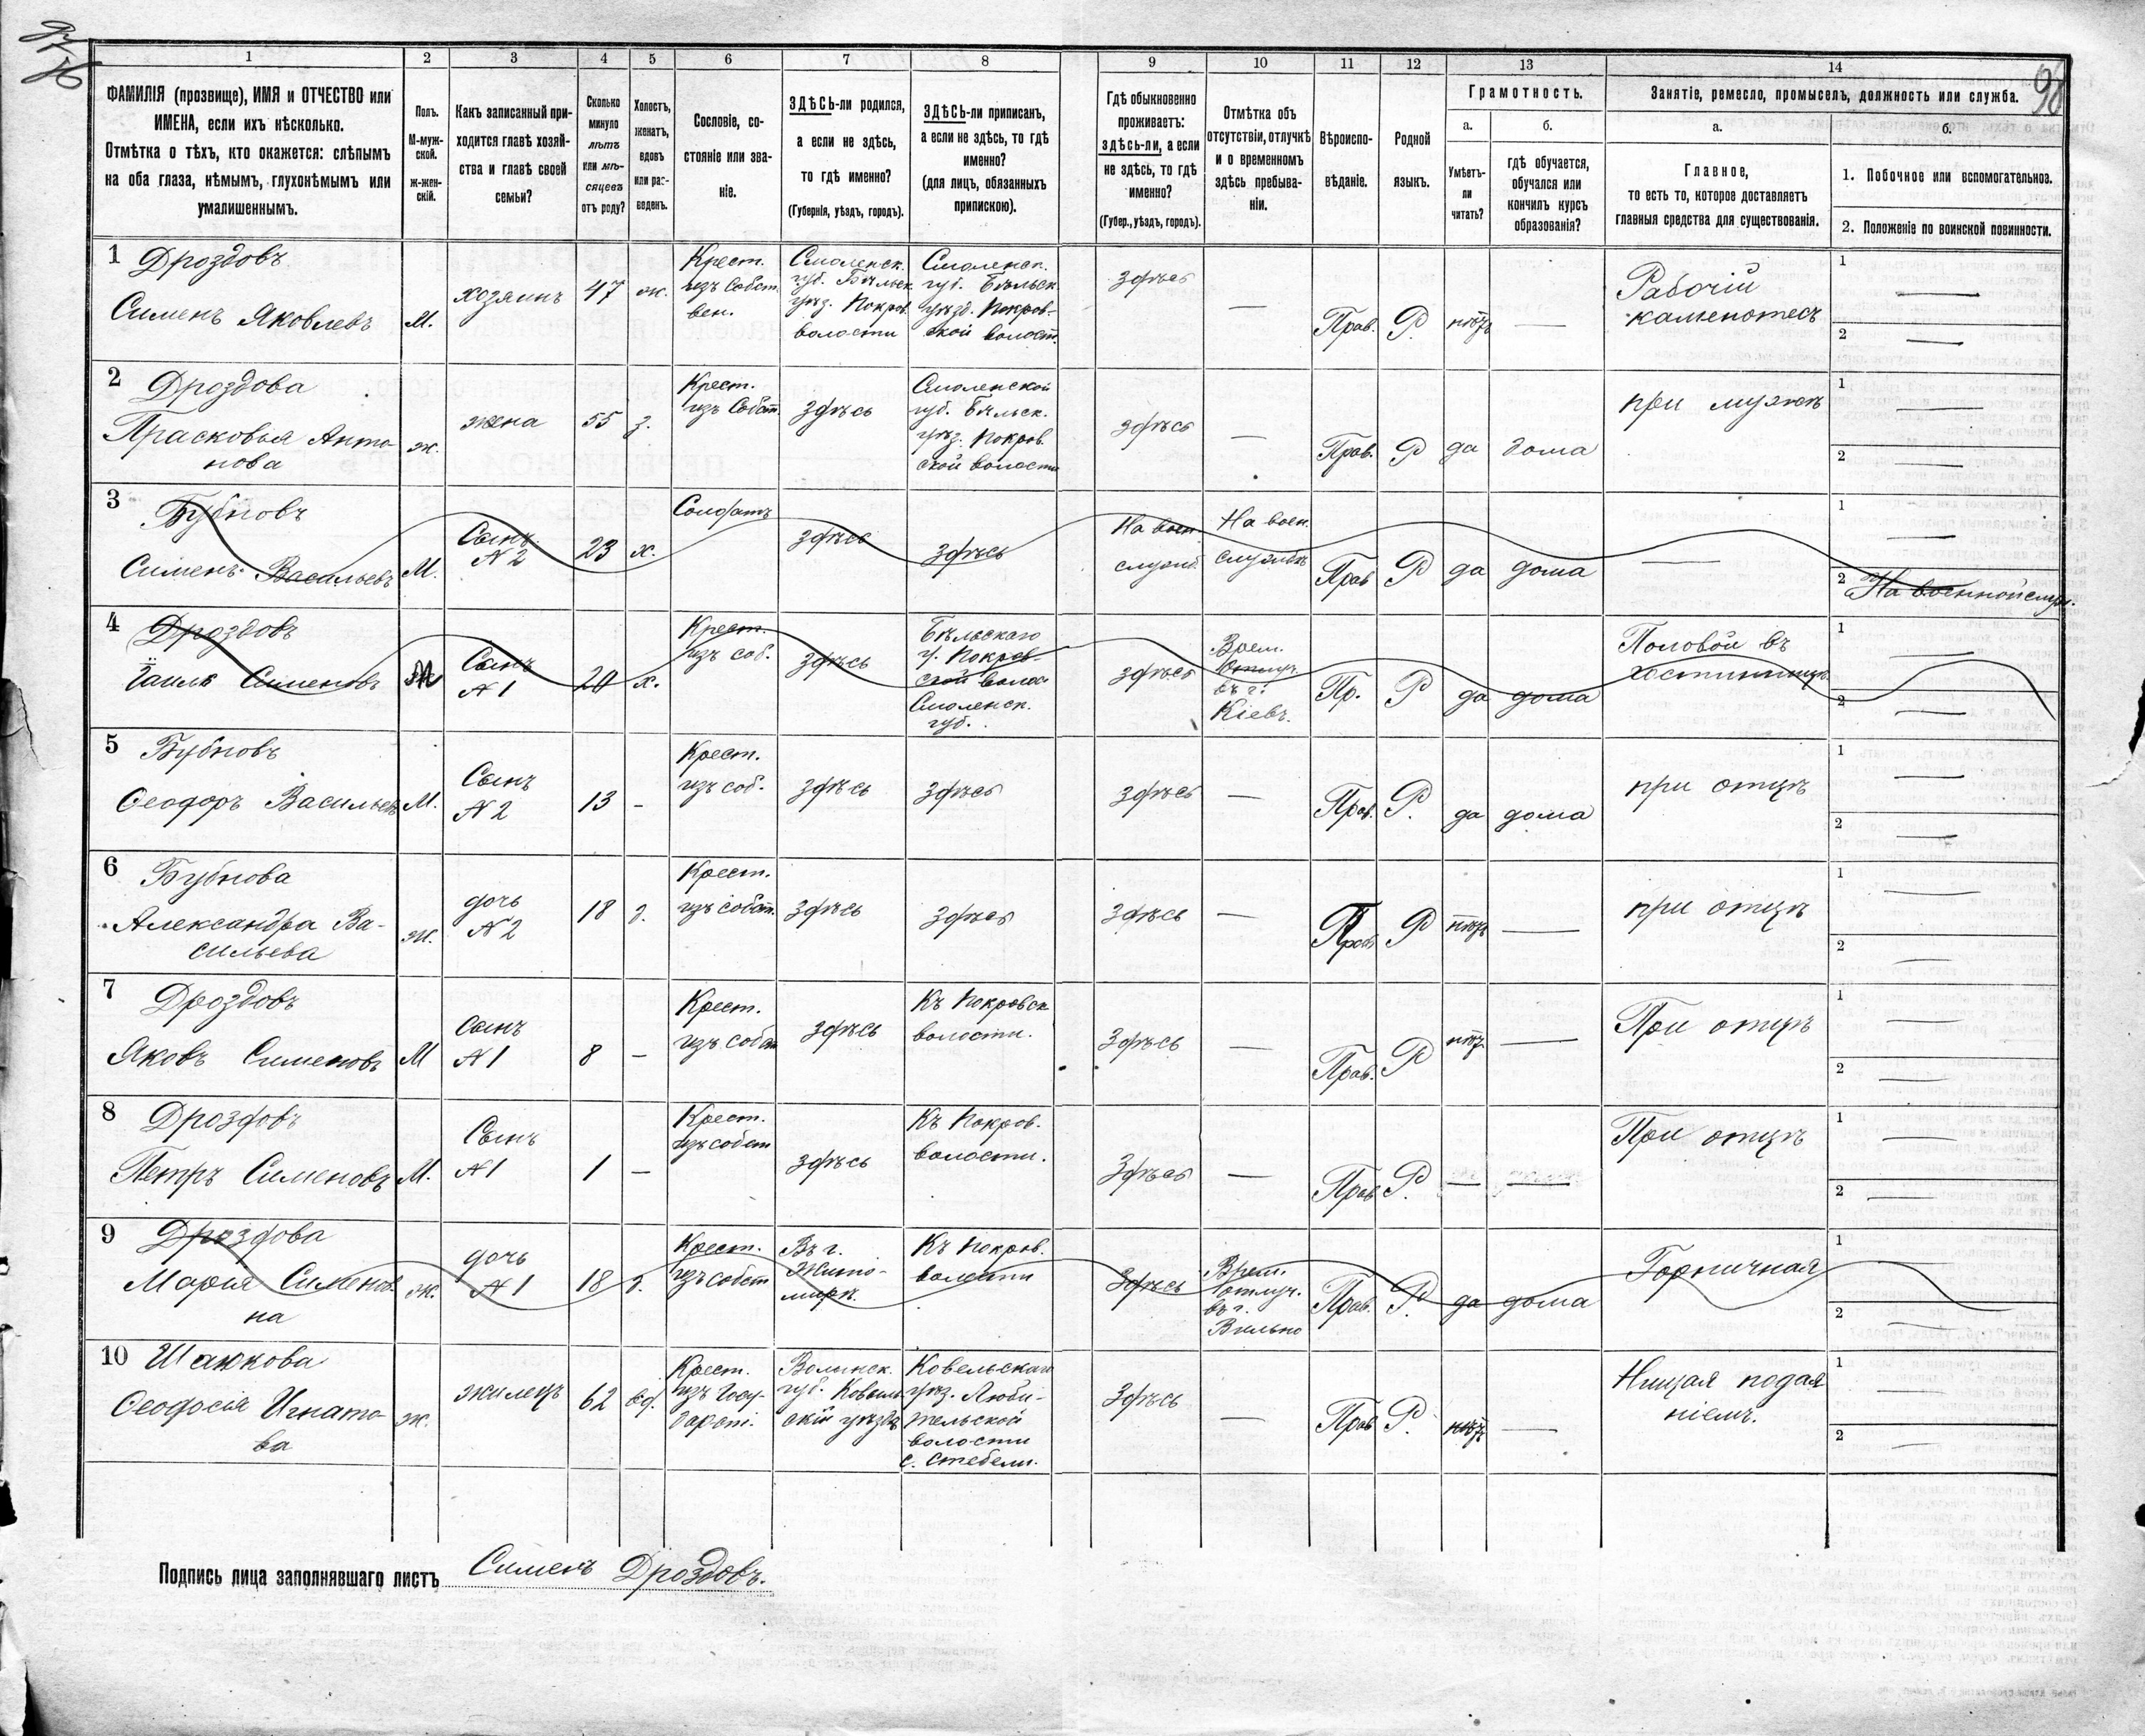 98
1 2 3 4 5 6 7 8 9 10 11 12 13 14
ФАМИЛІЯ (прозвище), ИМЯ и ОТЧЕСТВО или
ИМЕНА, если ихъ нѣсколько.
Отмѣтка о тѣхъ, кто окажется: слѣпымъ
на оба глаза, нѣмымъ, глухонѣмымъ или
умалишеннымъ.
Полъ.
М-муж-
ской.
Ж-жен-
скій.
Какъ записанный при-
ходится главѣ хозяй-
ства и главѣ своей
семьи?
Сколько
минуло
лѣтъ
или мѣ-
сяцевъ
отъ роду?
Холостъ,
женатъ,
вдовъ
или раз-
веденъ.
Сословіе, со-
стояніе или зва-
ніе.
ЗДѢСЬ-ли родился,
а если не здѣсь,
то гдѣ именно?
(Губернія, уѣздъ, городъ).
ЗДѢСЬ-ли приписанъ,
а если не здѣсь, то гдѣ
именно?
(для лицъ, обязанныхъ
припискою).
Гдѣ обыкновенно
проживаетъ:
здѣсь-ли, а если
не здѣсь, то гдѣ
именно?
(Губер., уѣздъ, городъ).
Отмѣтка объ
отсутствіи, отлучкѣ
и о временномъ
здѣсь пребыва-
ніи.
Вѣроиспо-
вѣданіе.
Родной
языкъ.
Грамотность.
а.
Умѣетъ-
ли
читать?
б.
гдѣ обучается,
обучался или
кончилъ курсъ
образованія?
Занятіе, ремесло, промыселъ, должность или служба.
а.
Главное,
то есть то, которое доставляетъ
главныя средства для существованія.
б.
1. Побочное или вспомогательное.
2. Положеніе по воинской повинности.
1 Дроздовъ
Сименъ Яковлевъ
М.
хозяинъ
47
ж.
Крест.
изъ Собст
вен.
Смоленск.
губ. Бѣльск
уѣз. Покров.
волости
Смоленск.
губ. Бѣльск
уѣзд. Покров-
ской волост.
здѣсь
—
Прав.
Р.
нѣтъ
—
Рабочій
каменотесъ
1 —
2 —
2 Дроздова
Прасковья Анто-
нова
ж.
жена
55
з.
Крест.
изъ Собст.
здѣсь
Смоленской
губ. Бѣльск.
уѣз. Покров.
ской волости
здѣсь
—
Прав.
Р
да
дома
при мужѣ
1 —
2 —
3 Бубновъ
Сименъ Васильевъ
М.
Сынъ
№ 2
23
х.
Солдатъ
здѣсь
здѣсь
На воен.
служб.
На воен.
службѣ
Прав
Р
да
дома
—
1 —
2 На военной служ.
4 Дроздовъ
Сименовъ
Сынъ
№ 1
20
х.
Крест.
изъ соб.
здѣсь
Бѣльскаго
у. Покров-
ской волос
Смоленск.
губ.
здѣсь
Врем.
отлуч.
въ г.
Кіевъ.
Пр.
Р
да
дома
Половой въ
гостинницѣ
1 —
2 —
5 Бубновъ
Ѳеодоръ Васильевъ
М.
Сынъ
№ 2
13
-
Крест.
изъ соб.
здѣсь
здѣсь
здѣсь
—
Прав.
Р.
да
дома
при отцѣ
1 —
2 —
6 Бубнова
Александра Ва-
сильева
ж.
дочь
№ 2
18
д.
Крест.
изъ собст.
здѣсь
здѣсь
здѣсь
—
Прав
Р
нѣтъ
—
при отцѣ
1 —
2 —
7 Дроздовъ
Яковъ Сименовъ
М
сынъ
№ 1
8
-
Крест.
изъ собст
здѣсь
Къ Покровск
волости.
Здѣсь
—
Прав.
Р
нѣтъ
—
При отцѣ
1 —
2 —
8 Дроздовъ
Петръ Сименовъ
М.
Сынъ
№ 1
1
-
Крест.
изъ собст
здѣсь
Къ Покров.
волости.
Здѣсь
—
Прав
Р.
—
—
При отцѣ
1 —
2 —
9 Дроздова
Марія Сименов.
на
ж.
дочь
№ 1
18
д.
Крест.
изъ собст
Въ г.
Жито-
мирѣ.
Къ Покров.
волости
Здѣсь
Врем.
отлуч.
въ г.
Вильно
Прав.
Р.
да
дома
Горничная
1 —
2 —
10 Шаюкова
Ѳеодосія Игнато-
ва
ж.
жилецъ
62
вд.
Крест.
изъ Госу-
дарст.
Волынск.
губ. Ковель-
скій уѣздъ
Ковельскаго
уѣз. Люби-
тельской
волости
с. Стебели.
Здѣсь
—
Прав
Р.
нѣтъ
—
Нищая подая
ніемъ.
1 —
2 —
Подпись лица заполнявшаго листъ Сименъ Дроздовъ.